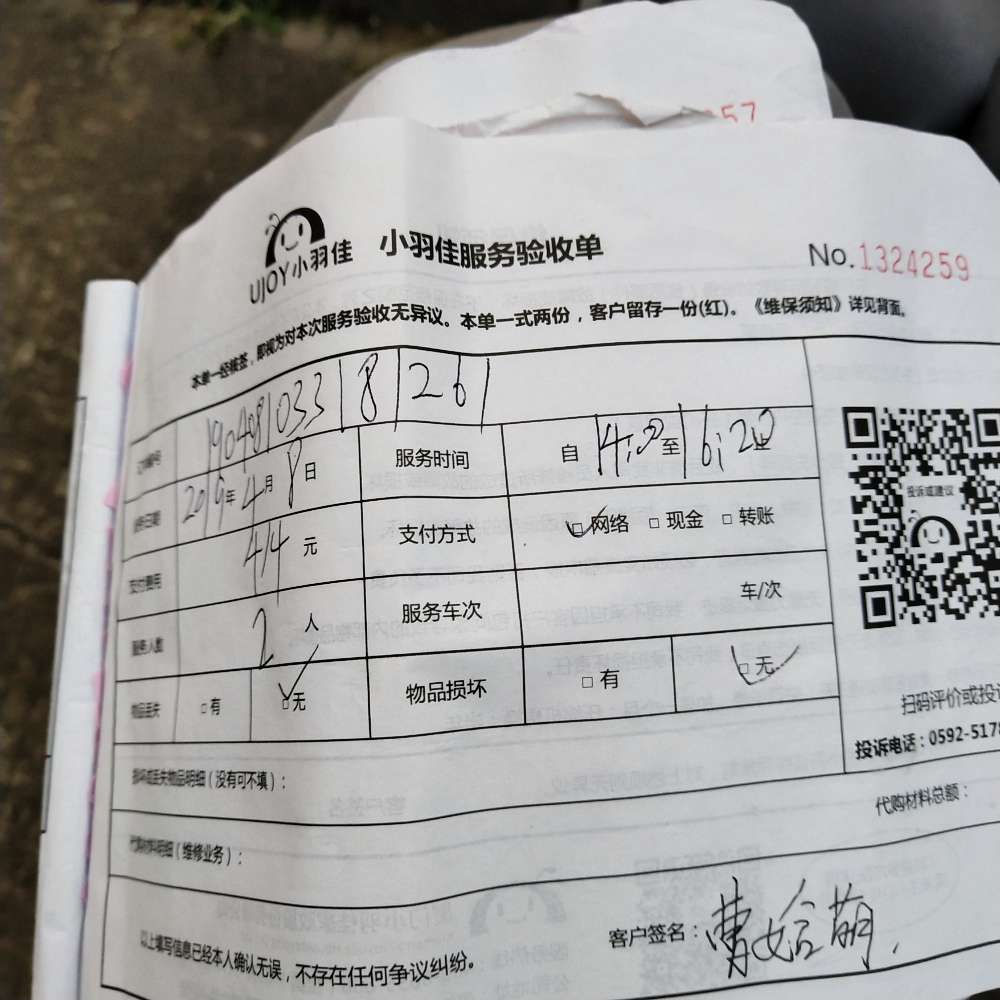 57
UJOY小羽佳 小羽佳服务验收单 No.1324259
本单一经核签，即视为对本次服务验收无异议。本单一式两份，客户留存一份(红)。《维保须知》详见背面。
订单编号 19048103318126
服务日期 2019年4月8日 服务时间 自14:00至16:20止
支付费用 414元 支付方式 □网络 □现金 □转账
服务人数 2人 服务车次 车/次
物品丢失 □有 □无 物品损坏 □有 □无
投诉或建议
扫码评价或投
投诉电话：0592-5178
损坏或丢失物品明细（没有可不填）：
代购材料明细（维修业务）： 代购材料总额：
以上填写信息已经本人确认无误，不存在任何争议纠纷。 客户签名：